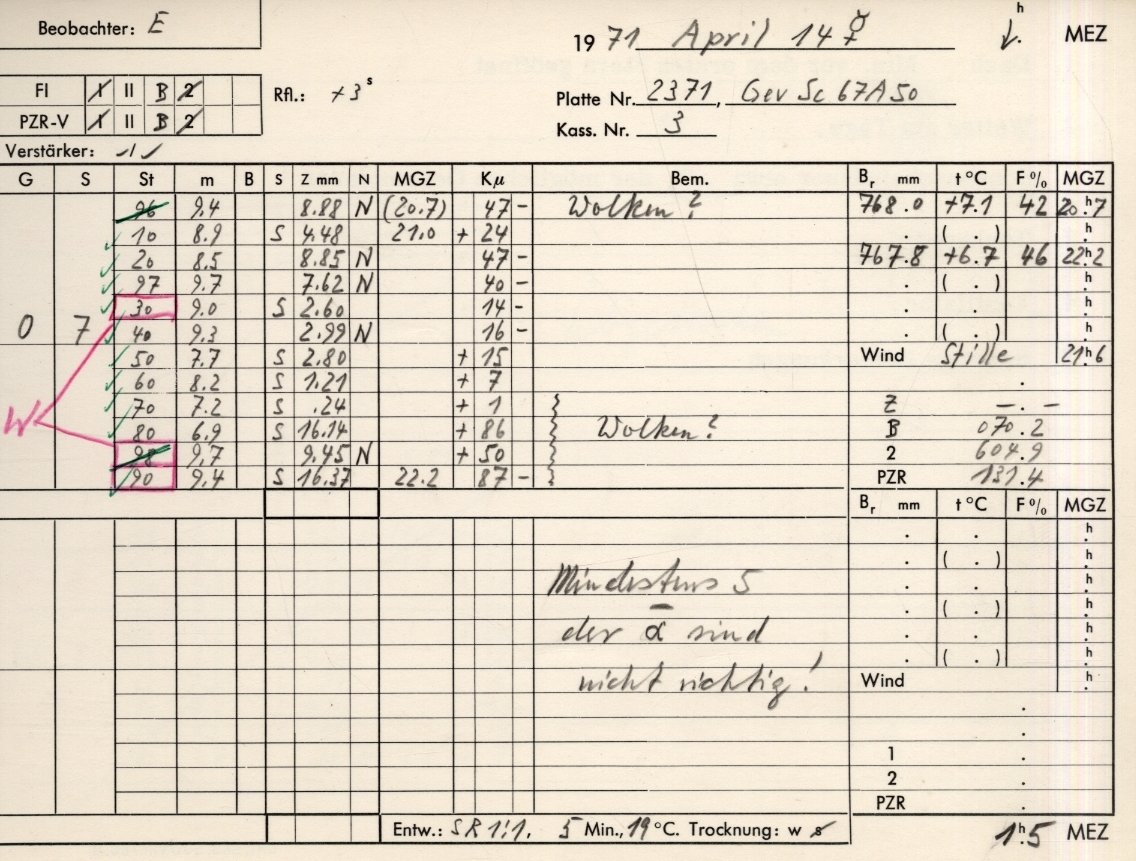 Beobachter: E
19 71 April 14 ☿ h MEZ
FI 1 II B 2
PZR-V 1 II B 2
Rfl.: +3 s
Platte Nr. 2371, Gev Sc 67A50
Kass. Nr. 3
Verstärker: 1
G S St m B S Z mm N MGZ Kμ Bem. Br mm t °C F % MGZ
96 9.4 8.88 N (20.7) 47 - Wolken? 768.0 +7.1 42 20h.7
10 8.9 S 4.48 21.0 + 24 . ( . ) h.
20 8.5 8.85 N 47 - 767.8 +6.7 46 22h.2
97 9.7 7.62 N 40 - . ( . ) h.
30 9.0 S 2.60 14 - . . h.
0 7 40 9.3 2.99 N 16 - . ( . ) h.
50 7.7 S 2.80 + 15 Wind Stille 21h.6
60 8.2 S 1.21 + 7 .
70 7.2 S .24 + 1 Z -.-
W 80 6.9 S 16.14 + 86 Wolken? B 070.2
98 9.7 9.45 N + 50 2 604.9
90 9.4 S 16.37 22.2 87 - PZR 131.4
Br mm t °C F % MGZ
. . h.
. ( . ) h.
Mindestens 5 . . h.
. ( . ) h.
der α sind . . h.
. ( . ) h.
nicht richtig! Wind h.
.
.
1 .
2 .
PZR .
Entw.: SR 1:1, 5 Min., 19 °C. Trocknung: w s 1h.5 MEZ